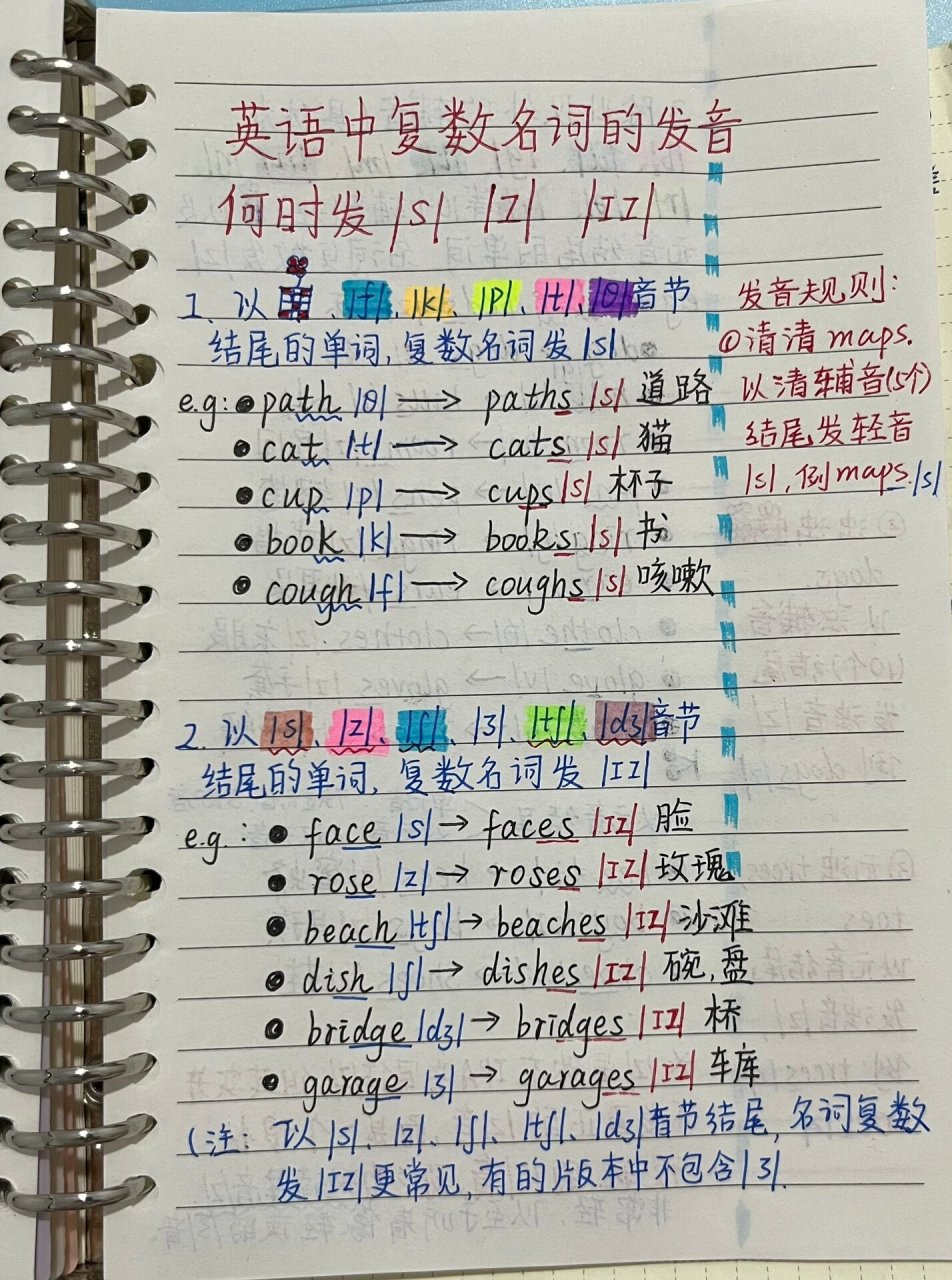 英语中复数名词的发音
何时发 |s| |z| |ɪz|
1. 以 、|f|、|k|、|p|、|t|、|θ|音节
结尾的单词,复数名词发|s|
e.g: ● path |θ| → paths |s| 道路
● cat |t| → cats |s| 猫
● cup |p| → cups |s| 杯子
● book |k| → books |s| 书
● cough |f| → coughs |s| 咳嗽
发音规则:
①清清 maps.
以清辅音(5个)
结尾发轻音
|s|,例 maps |s|
2. 以|s|、|z|、|ʃ|、|ʒ|、|tʃ|、|dʒ|音节
结尾的单词,复数名词发 |ɪz|
e.g.: ● face |s| → faces |ɪz| 脸
● rose |z| → roses |ɪz| 玫瑰
● beach |tʃ| → beaches |ɪz| 沙滩
● dish |ʃ| → dishes |ɪz| 碗,盘
● bridge |dʒ| → bridges |ɪz| 桥
● garage |ʒ| → garages |ɪz| 车库
(注: 以|s|、|z|、|ʃ|、|tʃ|、|dʒ|音节结尾,名词复数
发|ɪz|更常见,有的版本中不包含|ʒ|.